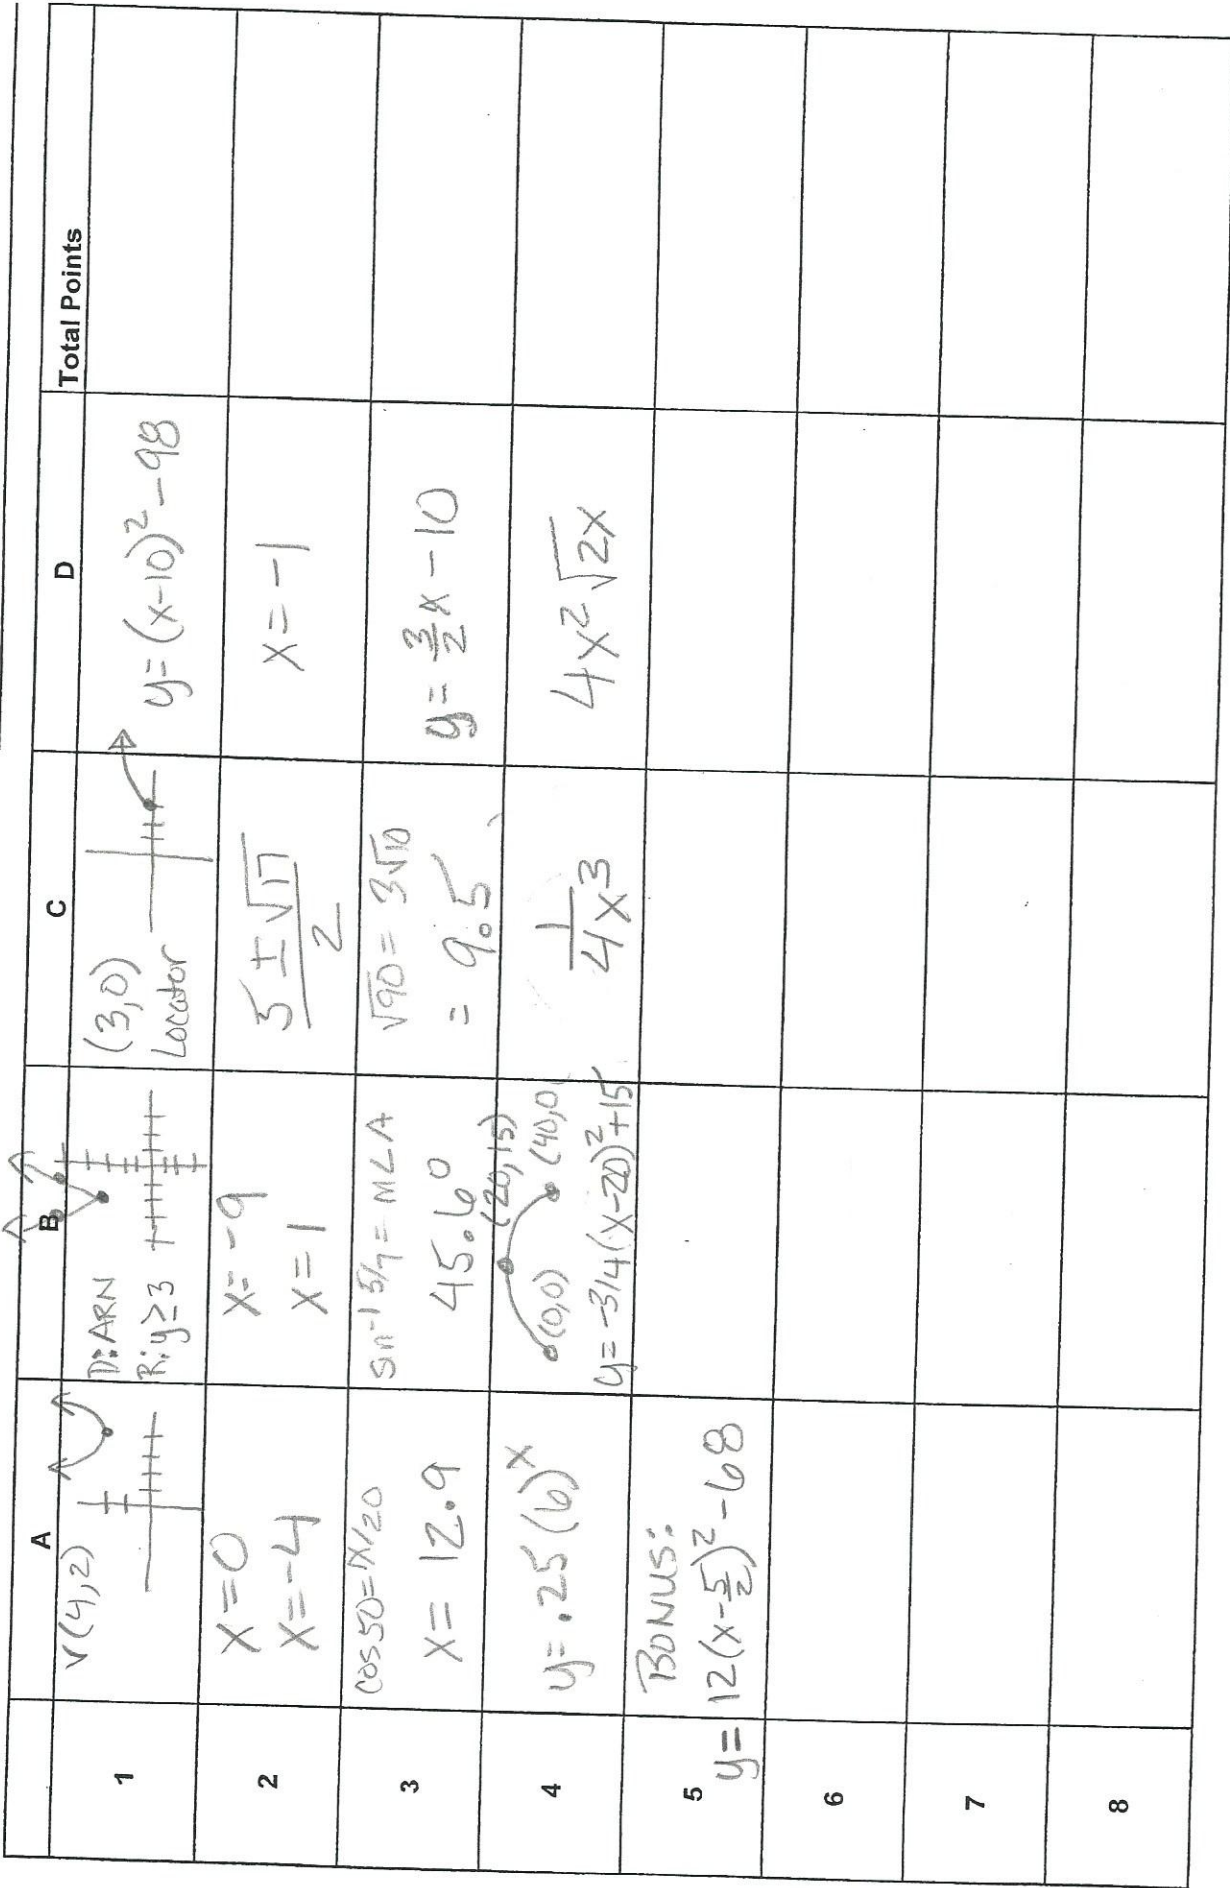 A B C D Total Points
1
V(4,2)
D: ARN
R: y≥3
(3,0)
Locator
y=(x-10)²-98
2
x=0
x=-4
x=-9
x=1
5±√17
2
x=-1
3
cos50=x/20
x=12.9
sin⁻¹ 5/7 = m∠A
45.6°
√90=3√10
= 9.5
y=3/2x-10
4
y=.25(6)ˣ
(0,0) (20,15) (40,0)
y=-3/4(x-20)²+15
1
4x³
4x²√2x
5
BONUS:
y=12(x-5/2)²-68
6
7
8